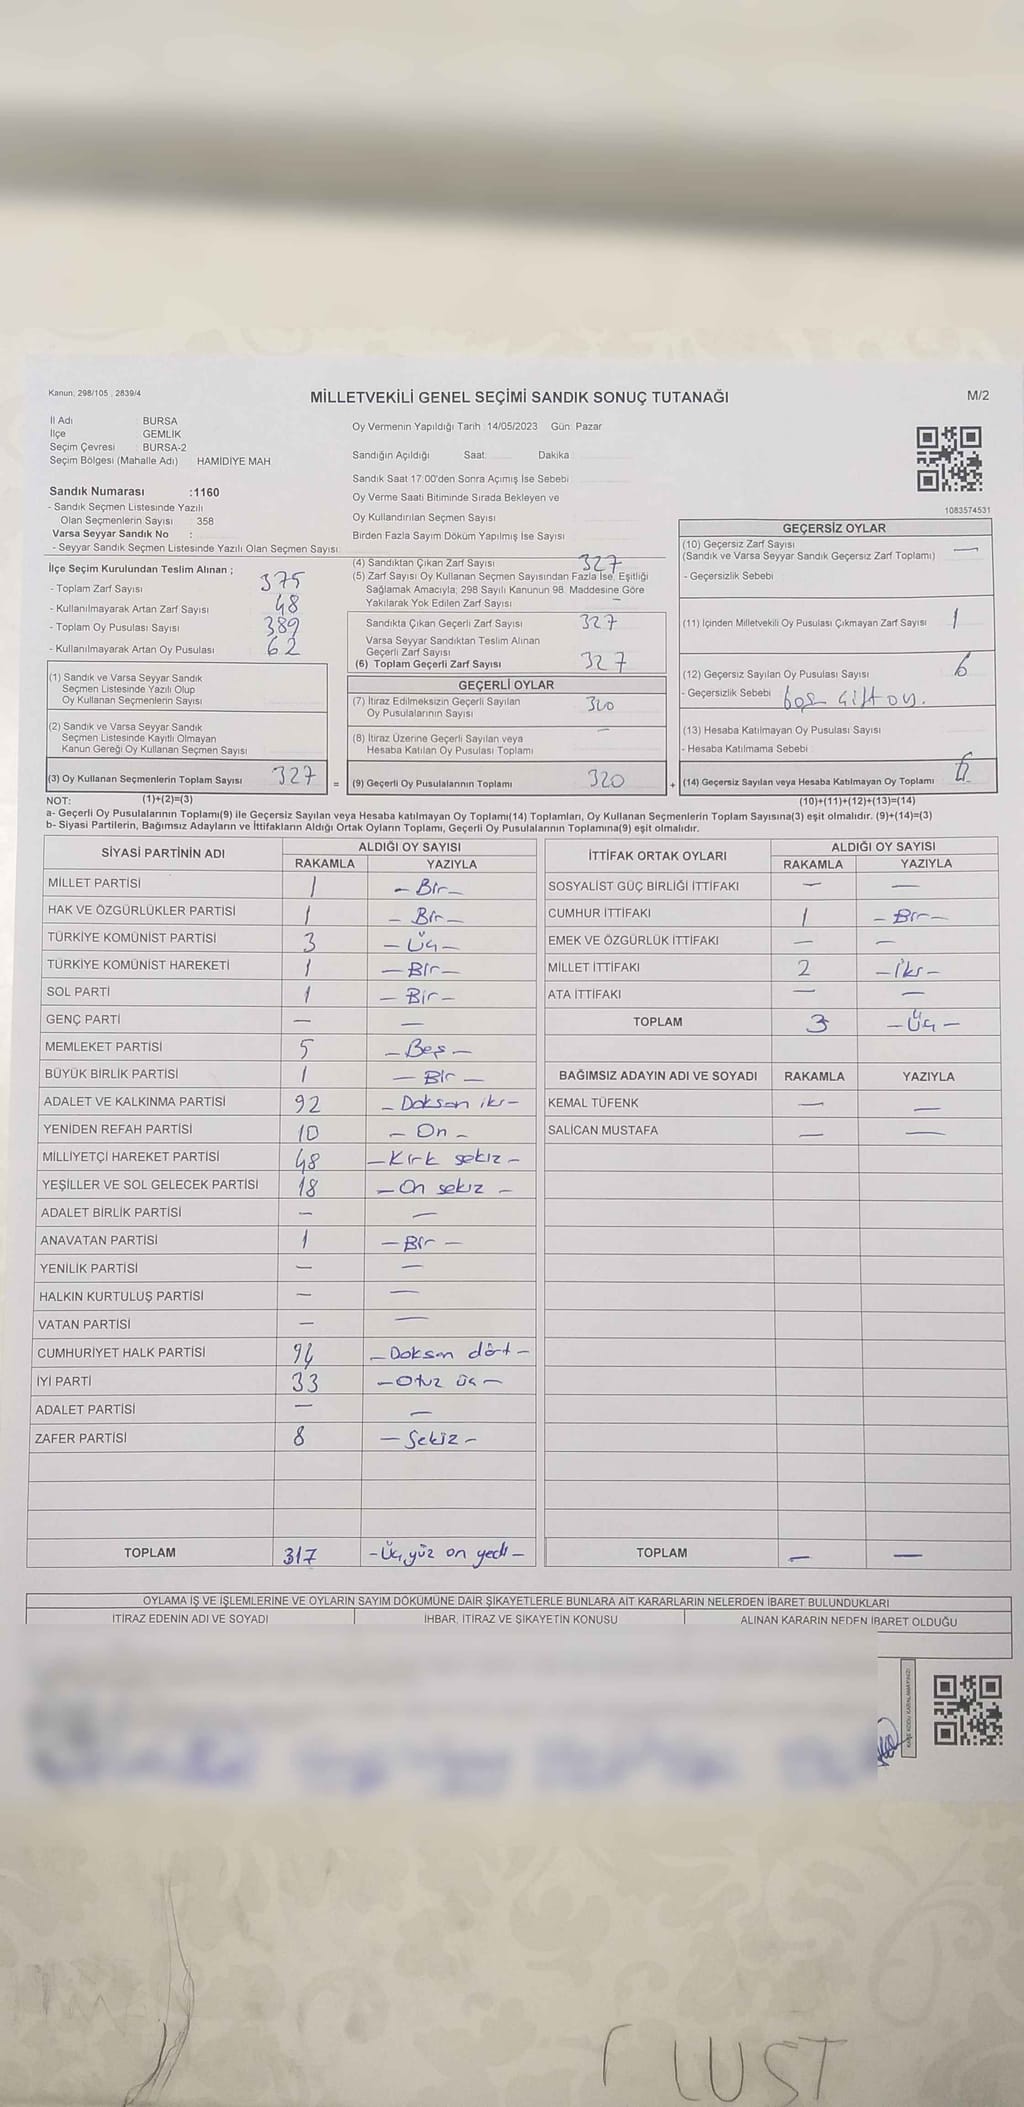 Kanun; 298/105 , 2839/4
MİLLETVEKİLİ GENEL SEÇİMİ SANDIK SONUÇ TUTANAĞI
M/2
İl Adı BURSA
İlçe GEMLİK
Seçim Çevresi BURSA-2
Seçim Bölgesi (Mahalle Adı) HAMİDİYE MAH.
Sandık Numarası :1160
- Sandık Seçmen Listesinde Yazılı
Olan Seçmenlerin Sayısı 358
Varsa Seyyar Sandık No :
- Seyyar Sandık Seçmen Listesinde Yazılı Olan Seçmen Sayısı
İlçe Seçim Kurulundan Teslim Alınan ;
- Toplam Zarf Sayısı 375
- Kullanılmayarak Artan Zarf Sayısı 48
- Toplam Oy Pusulası Sayısı 389
- Kullanılmayarak Artan Oy Pusulası 62
(1) Sandık ve Varsa Seyyar Sandık
Seçmen Listesinde Yazılı Olup
Oy Kullanan Seçmenlerin Sayısı
(2) Sandık ve Varsa Seyyar Sandık
Seçmen Listesinde Kayıtlı Olmayan
Kanun Gereği Oy Kullanan Seçmen Sayısı
(3) Oy Kullanan Seçmenlerin Toplam Sayısı 327 =
Oy Vermenin Yapıldığı Tarih 14/05/2023 Gün: Pazar
Sandığın Açıldığı Saat: Dakika
Sandık Saat 17:00'den Sonra Açımış İse Sebebi
Oy Verme Saati Bitiminde Sırada Bekleyen ve
Oy Kullandırılan Seçmen Sayısı
Birden Fazla Sayım Döküm Yapılmış İse Sayısı
(4) Sandıktan Çıkan Zarf Sayısı 327
(5) Zarf Sayısı Oy Kullanan Seçmen Sayısından Fazla İse, Eşitliği
Sağlamak Amacıyla; 298 Sayılı Kanunun 98. Maddesine Göre
Yakılarak Yok Edilen Zarf Sayısı —
Sandıkta Çıkan Geçerli Zarf Sayısı 327
Varsa Seyyar Sandıktan Teslim Alınan
Geçerli Zarf Sayısı
(6) Toplam Geçerli Zarf Sayısı 327
GEÇERLİ OYLAR
(7) İtiraz Edilmeksizin Geçerli Sayılan
Oy Pusulalarının Sayısı 320
(8) İtiraz Üzerine Geçerli Sayılan veya
Hesaba Katılan Oy Pusulası Toplamı —
(9) Geçerli Oy Pusulalarının Toplamı 320 +
1083574531
GEÇERSİZ OYLAR
(10) Geçersiz Zarf Sayısı
(Sandık ve Varsa Seyyar Sandık Geçersiz Zarf Toplamı) —
- Geçersizlik Sebebi
(11) İçinden Milletvekili Oy Pusulası Çıkmayan Zarf Sayısı 1
(12) Geçersiz Sayılan Oy Pusulası Sayısı 6
- Geçersizlik Sebebi boş çift oy.
(13) Hesaba Katılmayan Oy Pusulası Sayısı
- Hesaba Katılmama Sebebi
(14) Geçersiz Sayılan veya Hesaba Katılmayan Oy Toplamı
NOT: (1)+(2)=(3)
(10)+(11)+(12)+(13)=(14)
a- Geçerli Oy Pusulasının Toplamı(9) ile Geçersiz Sayılan veya Hesaba katılmayan Oy Toplamı(14) Toplamları, Oy Kullanan Seçmenlerin Toplam Sayısına(3) eşit olmalıdır. (9)+(14)=(3)
b- Siyasi Partilerin, Bağımsız Adayların ve İttifakların Aldığı Ortak Oyların Toplamı, Geçerli Oy Pusulalarının Toplamına(9) eşit olmalıdır.
SİYASİ PARTİNİN ADI ALDIĞI OY SAYISI
RAKAMLA YAZIYLA
MİLLET PARTİSİ 1 — Bir —
HAK VE ÖZGÜRLÜKLER PARTİSİ 1 — Bir —
TÜRKİYE KOMÜNİST PARTİSİ 3 — Üç —
TÜRKİYE KOMÜNİST HAREKETİ 1 — Bir —
SOL PARTİ 1 — Bir —
GENÇ PARTİ — —
MEMLEKET PARTİSİ 5 — Beş —
BÜYÜK BİRLİK PARTİSİ 1 — Bir —
ADALET VE KALKINMA PARTİSİ 92 — Doksan iki —
YENİDEN REFAH PARTİSİ 10 — On —
MİLLİYETÇİ HAREKET PARTİSİ 48 — Kırk sekiz —
YEŞİLLER VE SOL GELECEK PARTİSİ 18 — On sekiz —
ADALET BİRLİK PARTİSİ — —
ANAVATAN PARTİSİ 1 — Bir —
YENİLİK PARTİSİ — —
HALKIN KURTULUŞ PARTİSİ — —
VATAN PARTİSİ — —
CUMHURİYET HALK PARTİSİ 94 — Doksan dört —
İYİ PARTİ 33 — Otuz üç —
ADALET PARTİSİ — —
ZAFER PARTİSİ 8 — Sekiz —
TOPLAM 317 — Üç yüz on yedi —
İTTİFAK ORTAK OYLARI ALDIĞI OY SAYISI
RAKAMLA YAZIYLA
SOSYALİST GÜÇ BİRLİĞİ İTTİFAKI — —
CUMHUR İTTİFAKI 1 — Bir —
EMEK VE ÖZGÜRLÜK İTTİFAKI — —
MİLLET İTTİFAKI 2 — İki —
ATA İTTİFAKI — —
TOPLAM 3 — Üç —
BAĞIMSIZ ADAYIN ADI VE SOYADI RAKAMLA YAZIYLA
KEMAL TÜFENK — —
SALİCAN MUSTAFA — —
TOPLAM — —
OYLAMA İŞ VE İŞLEMLERİNE VE OYLARIN SAYIM DÖKÜMÜNE DAİR ŞİKAYETLERLE BUNLARA AİT KARARLARIN NELERDEN İBARET BULUNDUKLARI
İTİRAZ EDENİN ADI VE SOYADI İHBAR, İTİRAZ VE ŞİKAYETİN KONUSU ALINAN KARARIN NEDEN İBARET OLDUĞU
KARE KODU KARALAMAYINIZ!
LUST